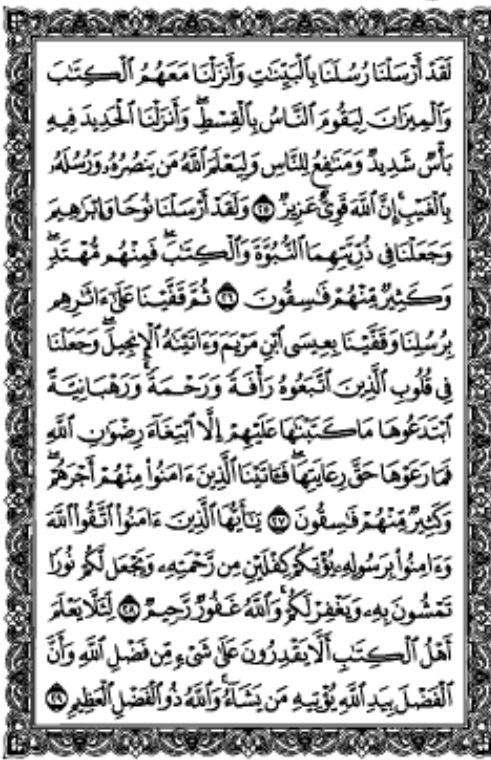 لَقَدْ أَرْسَلْنَا رُسُلَنَا بِالْبَيِّنَٰتِ وَأَنزَلْنَا مَعَهُمُ الْكِتَٰبَ
وَالْمِيزَانَ لِيَقُومَ النَّاسُ بِالْقِسْطِ ۖ وَأَنزَلْنَا الْحَدِيدَ فِيهِ
بَأْسٌ شَدِيدٌ وَمَنَٰفِعُ لِلنَّاسِ وَلِيَعْلَمَ اللَّهُ مَن يَنصُرُهُۥ وَرُسُلَهُۥ
بِالْغَيْبِ ۚ إِنَّ اللَّهَ قَوِىٌّ عَزِيزٌ ۝٢٥ وَلَقَدْ أَرْسَلْنَا نُوحًا وَإِبْرَٰهِيمَ
وَجَعَلْنَا فِى ذُرِّيَّتِهِمَا النُّبُوَّةَ وَالْكِتَٰبَ ۖ فَمِنْهُم مُّهْتَدٍ ۖ
وَكَثِيرٌ مِّنْهُمْ فَٰسِقُونَ ۝٢٦ ثُمَّ قَفَّيْنَا عَلَىٰٓ ءَاثَٰرِهِم
بِرُسُلِنَا وَقَفَّيْنَا بِعِيسَى ابْنِ مَرْيَمَ وَءَاتَيْنَٰهُ الْإِنجِيلَ ۖ وَجَعَلْنَا
فِى قُلُوبِ الَّذِينَ اتَّبَعُوهُ رَأْفَةً وَرَحْمَةً ۚ وَرَهْبَانِيَّةً
ابْتَدَعُوهَا مَا كَتَبْنَٰهَا عَلَيْهِمْ إِلَّا ابْتِغَآءَ رِضْوَٰنِ اللَّهِ
فَمَا رَعَوْهَا حَقَّ رِعَايَتِهَا ۖ فَـَٔاتَيْنَا الَّذِينَ ءَامَنُوا۟ مِنْهُمْ أَجْرَهُمْ ۖ
وَكَثِيرٌ مِّنْهُمْ فَٰسِقُونَ ۝٢٧ يَٰٓأَيُّهَا الَّذِينَ ءَامَنُوا۟ اتَّقُوا۟ اللَّهَ
وَءَامِنُوا۟ بِرَسُولِهِۦ يُؤْتِكُمْ كِفْلَيْنِ مِن رَّحْمَتِهِۦ وَيَجْعَل لَّكُمْ نُورًا
تَمْشُونَ بِهِۦ وَيَغْفِرْ لَكُمْ ۚ وَاللَّهُ غَفُورٌ رَّحِيمٌ ۝٢٨ لِّئَلَّا يَعْلَمَ
أَهْلُ الْكِتَٰبِ أَلَّا يَقْدِرُونَ عَلَىٰ شَىْءٍ مِّن فَضْلِ اللَّهِ ۙ وَأَنَّ
الْفَضْلَ بِيَدِ اللَّهِ يُؤْتِيهِ مَن يَشَآءُ ۚ وَاللَّهُ ذُو الْفَضْلِ الْعَظِيمِ ۝٢٩